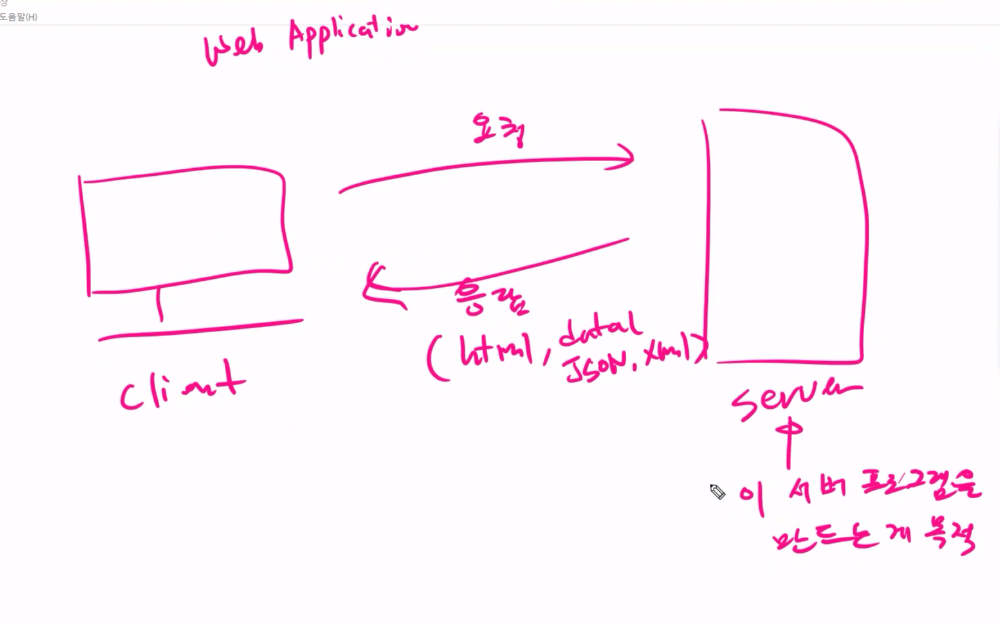 도움말(H)
Web Application
요청
응답
(html, data(
JSON, xml)
Client
Server
이 서버 프로그램을
만드는게 목적